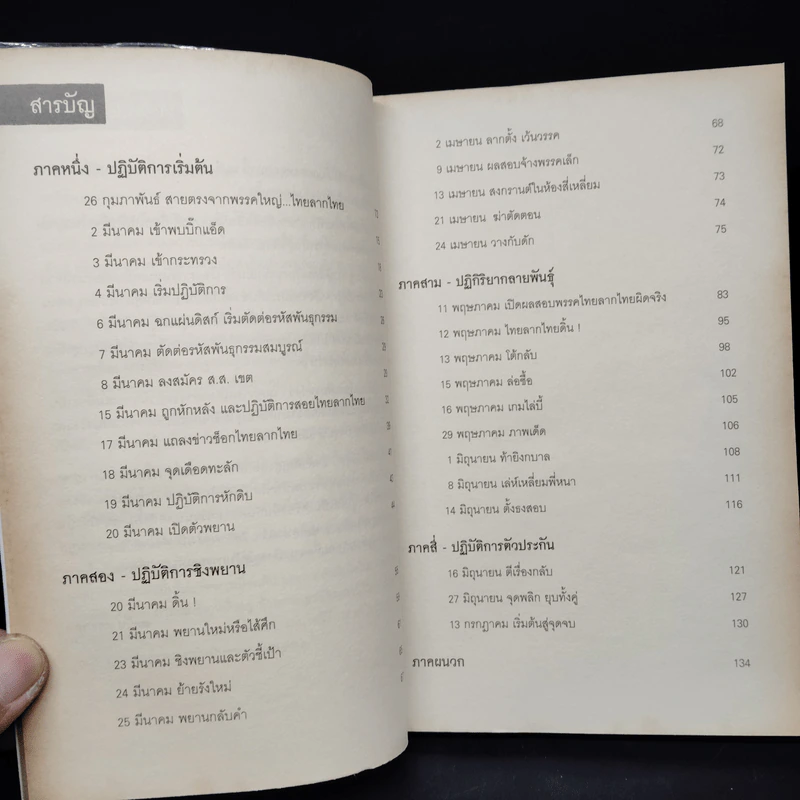 สารบัญ
ภาคหนึ่ง - ปฏิบัติการเริ่มต้น
26 กุมภาพันธ์ สายตรงจากพรรคใหญ่...ไทยลากไทย
2 มีนาคม เข้าพบบิ๊กแอ็ด
3 มีนาคม เข้ากระทรวง
4 มีนาคม เริ่มปฏิบัติการ
6 มีนาคม ฉกแผ่นดิสก์ เริ่มตัดต่อรหัสพันธุกรรม
7 มีนาคม ตัดต่อรหัสพันธุกรรมสมบูรณ์
8 มีนาคม ลงสมัคร ส.ส. เขต
15 มีนาคม ถูกหักหลัง และปฏิบัติการสอยไทยลากไทย
17 มีนาคม แถลงข่าวช็อกไทยลากไทย
18 มีนาคม จุดเดือดทะลัก
19 มีนาคม ปฏิบัติการหักดิบ
20 มีนาคม เปิดตัวพยาน
ภาคสอง - ปฏิบัติการชิงพยาน
20 มีนาคม ดิ้น !
21 มีนาคม พยานใหม่หรือไส้ศึก
23 มีนาคม ชิงพยานและตัวชี้เป้า
24 มีนาคม ย้ายรังใหม่
25 มีนาคม พยานกลับคำ
2 เมษายน ลากตั้ง เว้นวรรค 68
9 เมษายน ผลสอบจ้างพรรคเล็ก 72
13 เมษายน สงกรานต์ในห้องสี่เหลี่ยม 73
21 เมษายน ฆ่าตัดตอน 74
24 เมษายน วางกับดัก 75
ภาคสาม - ปฏิกิริยากลายพันธุ์
11 พฤษภาคม เปิดผลสอบพรรคไทยลากไทยผิดจริง 83
12 พฤษภาคม ไทยลากไทยดิ้น ! 95
13 พฤษภาคม โต้กลับ 98
15 พฤษภาคม ล่อซื้อ 102
16 พฤษภาคม เกมไล่บี้ 105
29 พฤษภาคม ภาพเด็ด 106
1 มิถุนายน ท้ายิงกบาล 108
8 มิถุนายน เล่ห์เหลี่ยมพี่หนา 111
14 มิถุนายน ตั้งธงสอบ 116
ภาคสี่ - ปฏิบัติการตัวประกัน
16 มิถุนายน ตีเรื่องกลับ 121
27 มิถุนายน จุดพลิก ยุบทั้งคู่ 127
13 กรกฎาคม เริ่มต้นสู่จุดจบ 130
ภาคผนวก 134